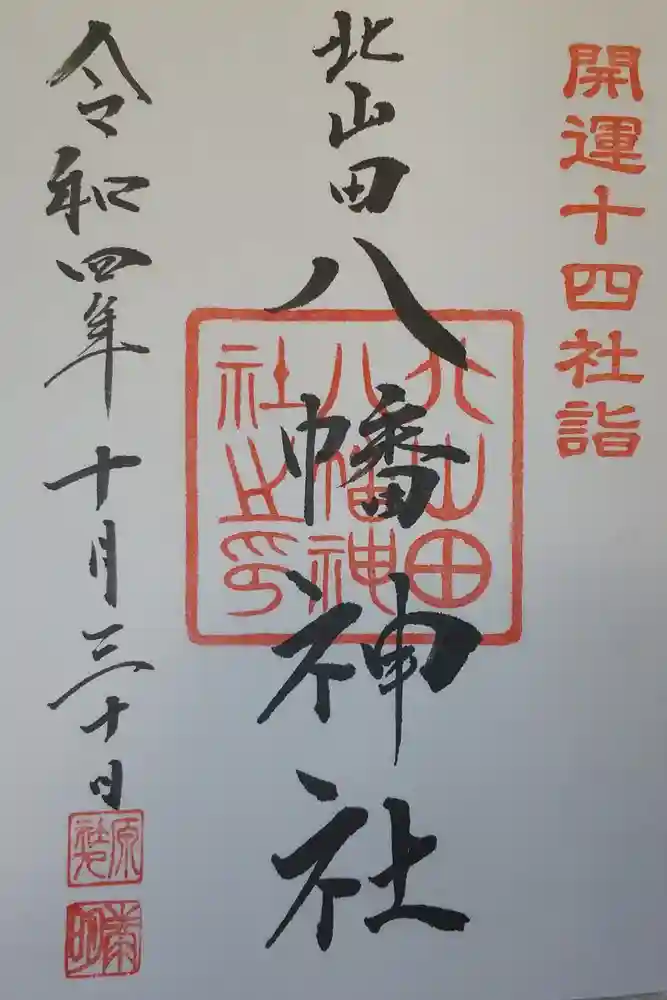 開運十四社詣
北山田八幡神社
北山田
八幡神
社之印
令和四年十月三十日